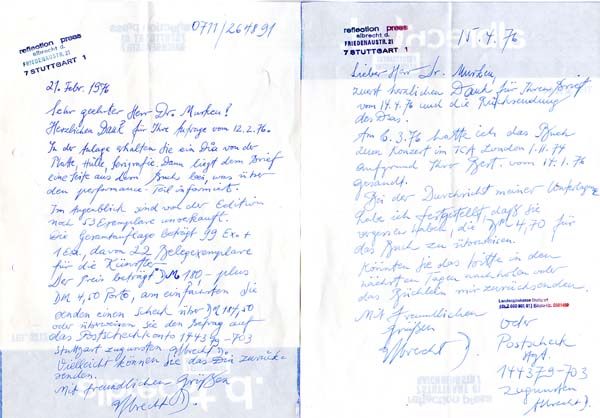 0711/264891
reflection press
albrecht d.
FRIEDENAUSTR. 21
7 STUTTGART 1
21. Febr. 1976
Sehr geehrter Herr Dr. Murken!
Herzlichen Dank für Ihre Anfrage vom 12.2.76.
In der Anlage erhalten Sie ein Dia von der
Platte, Hülle, Serigrafie. Dann liegt dem Brief
eine Seite aus dem Buch bei, was über
den performance-Teil informiert.
Im Augenblick sind von der Edition
noch 53 Exemplare unverkauft.
Die Gesamtauflage beträgt 99 Ex. +
1 Ex., davon 22 Belegexemplare
für die Künstler.
Der Preis beträgt DM 180,- plus
DM 4,50 Porto, am einfachsten Sie
senden einen Scheck über DM 184,50
oder überweisen Sie den Betrag auf
das Postscheckkonto 144379-703
Stuttgart zugunsten Albrecht D.
Vielleicht können Sie das Dia zurück-
senden.
Mit freundlichen Grüßen
Albrecht D.
reflection press
albrecht d.
FRIEDENAUSTR. 21
7 STUTTGART 1
15.4.76
Lieber Herr Dr. Murken,
zuerst herzlichen Dank für Ihren Brief
vom 14.4.76 und die Rücksendung
des Dias.
Am 6.3.76 hatte ich das Buch
zum Konzert im ICA London 1.11.74
aufgrund Ihrer Best. vom 17.1.76
gesandt.
Bei der Durchsicht meiner Unterlagen
habe ich festgestellt, daß Sie
vergessen haben, die DM 4,70 für
das Buch zu überweisen.
Könnten Sie das bitte in den
nächsten Tagen nachholen oder
das Büchlein mir zurücksenden.
Mit freundlichen
Grüßen
Albrecht D.
Landesgirokasse Stuttgart
oder
Postscheck
Kto.
144379-703
zugunsten
Albrecht D.